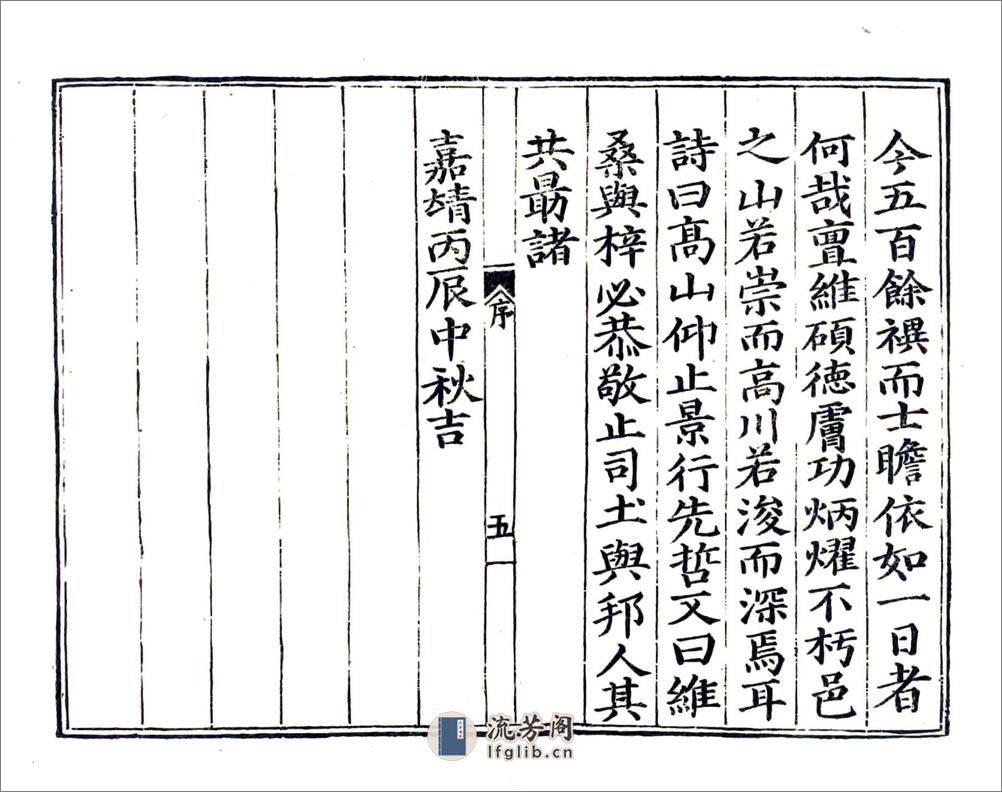 今五百餘禩而士瞻依如一日者
何哉亶維碩德膚功炳燿不朽邑
之山若崇而高川若浚而深焉耳
詩曰髙山仰止景行先哲又曰維
桑與梓必恭敬止司土與邦人其
共勗諸
序
五
嘉靖丙辰中秋吉
流芳阁
lfglib.cn